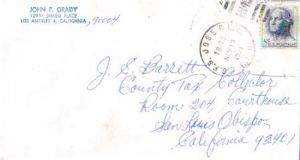 JOHN F. GRADY
LOS ANGELES 4, CALIFORNIA, 90004
J. E. Barrett
County Tax Collector
Room 204, Courthouse
San Louis Obispo,
California 93401